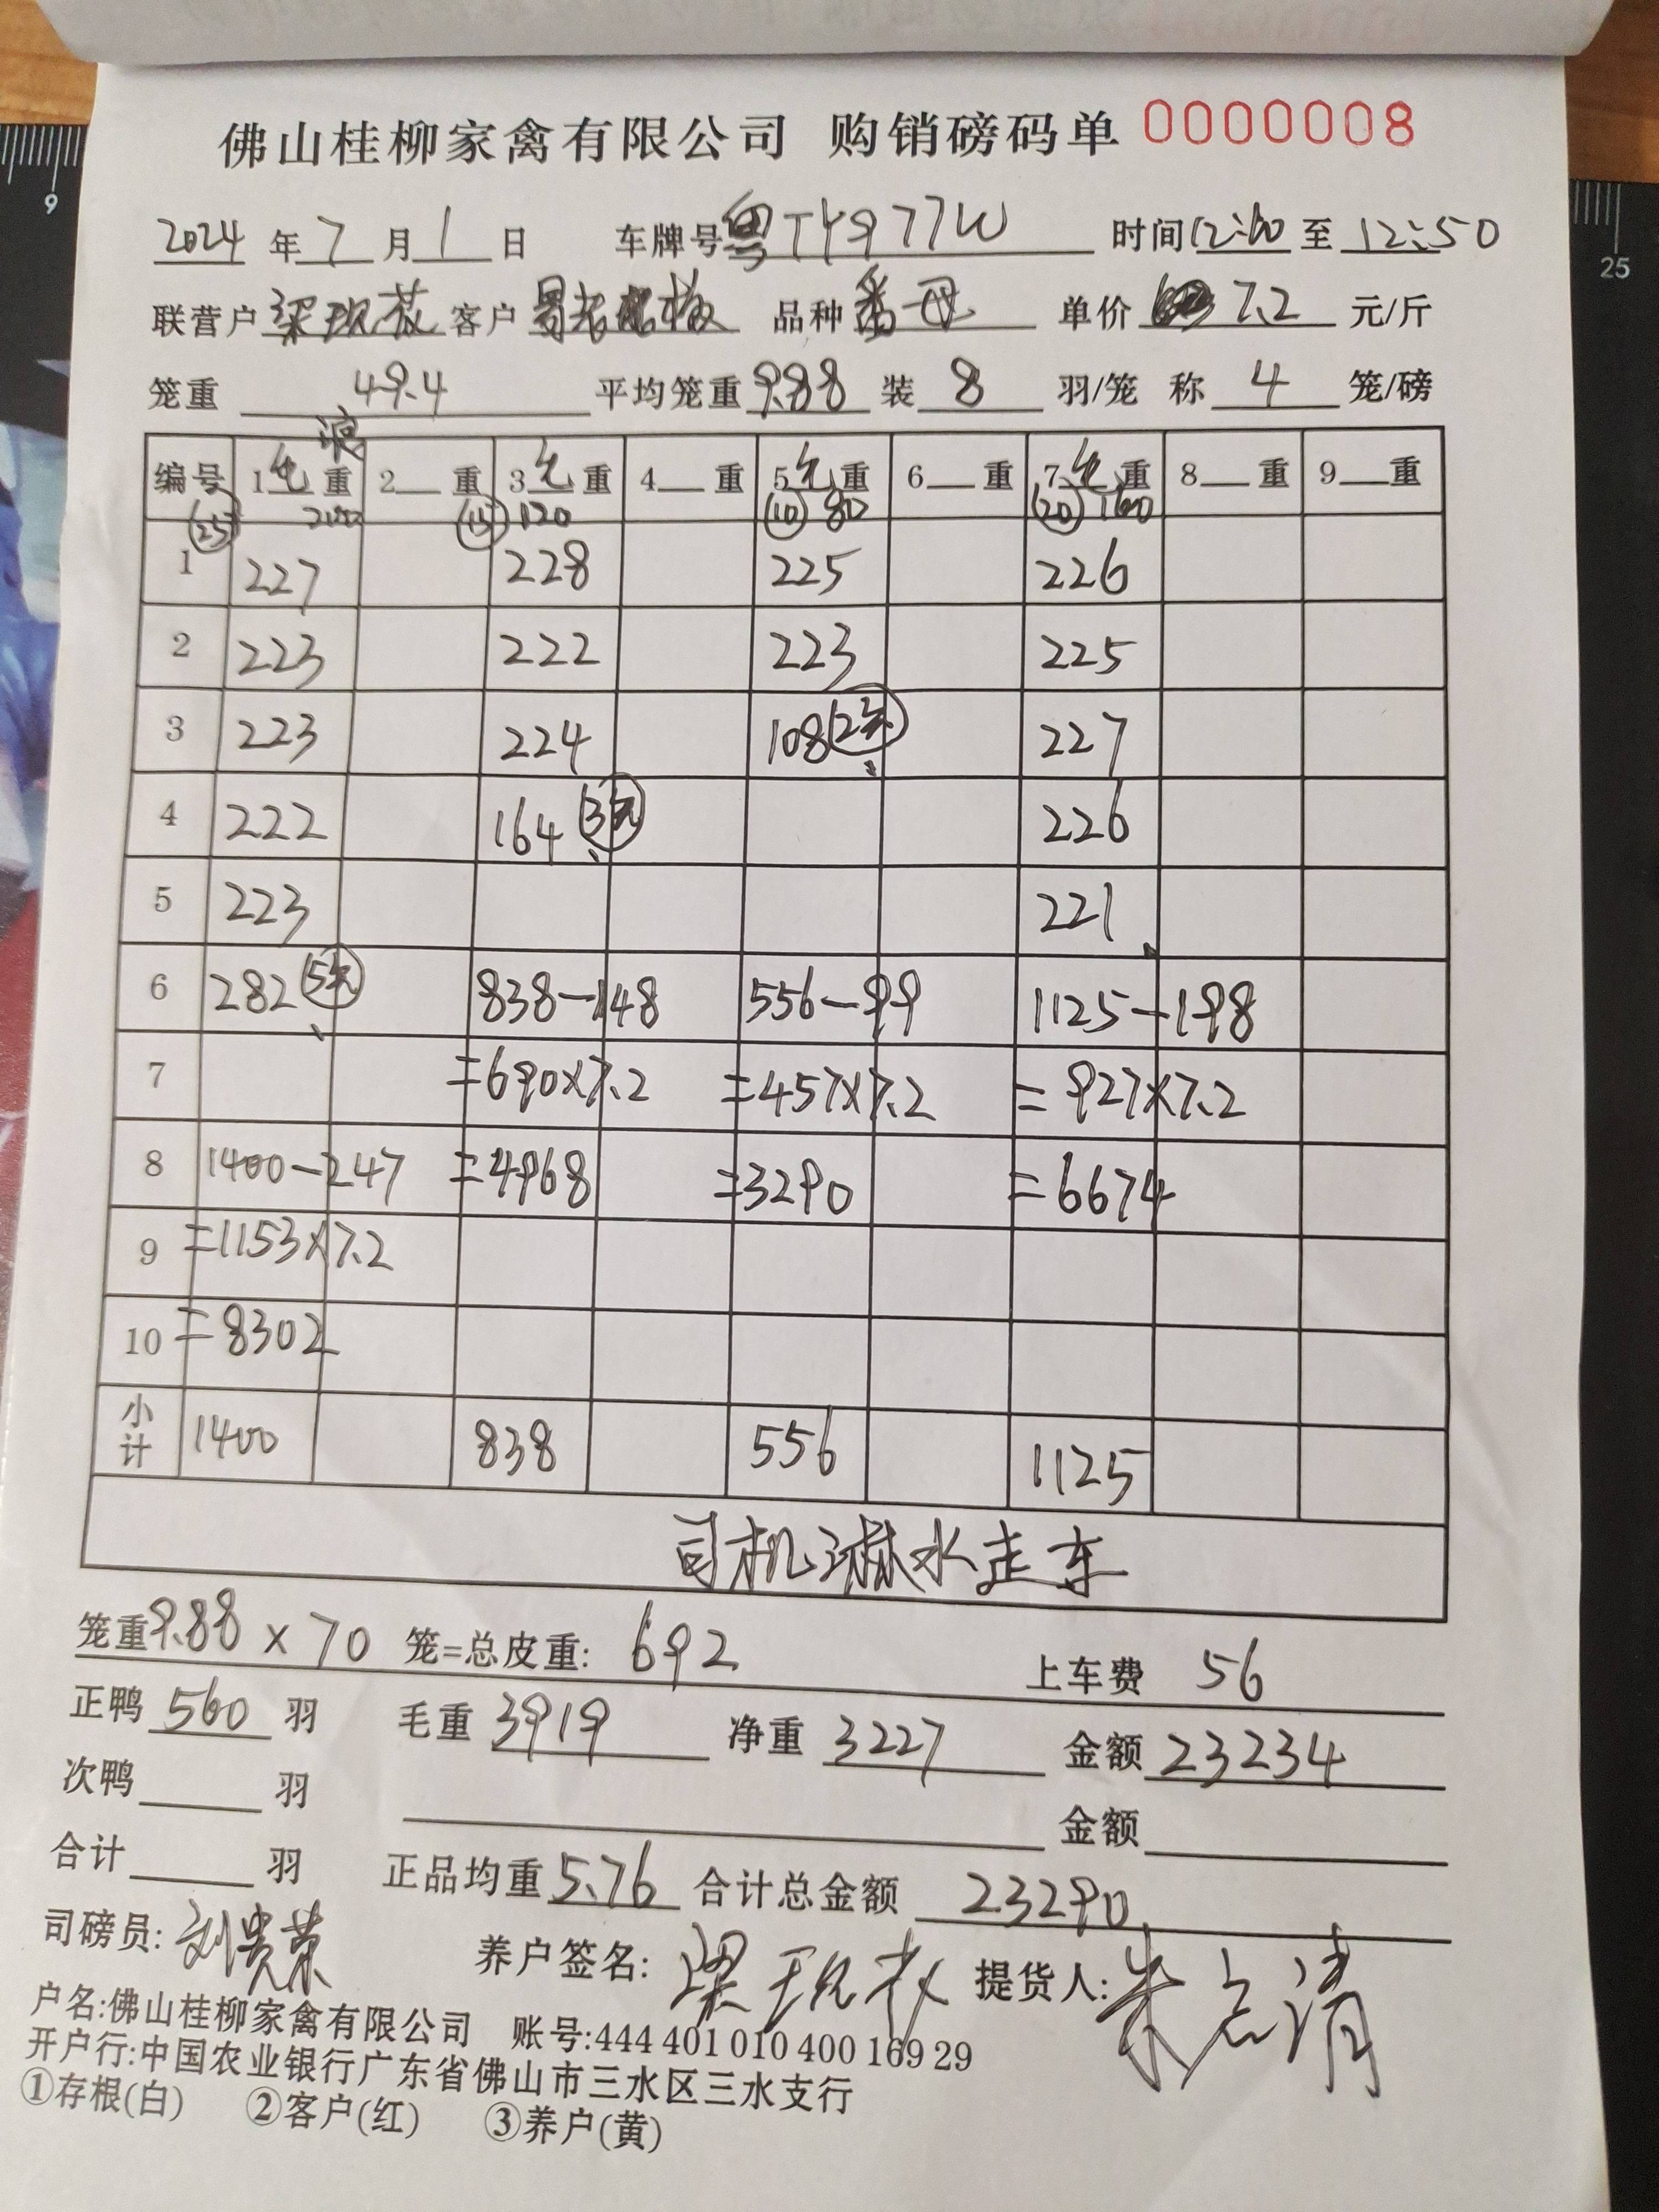 佛山桂柳家禽有限公司 购销磅码单 0000008
2024 年 7 月 1 日 车牌号 粤TY977W 时间 12:00 至 12:50
联营户 梁现荗 客户 品种 番母 单价 7.2 元/斤
笼重 49.4 平均笼重 9.88 装 8 羽/笼 称 4 笼/磅
编号 1 毛 重 2 重 3 毛 重 4 重 5 毛 重 6 重 7 毛 重 8 重 9 重
25 200 15 120 10 80 20 160
1 227 228 225 226
2 223 222 223 225
3 223 224 108 2笼 227
4 222 164 3笼 226
5 223 221
6 282 5笼 838-148 556-99 1125-198
7 =690×7.2 =457×7.2 =927×7.2
8 1400-247 =4968 =3290 =6674
9 =1153×7.2
10 =8302
小计 1400 838 556 1125
司机淋水走车
笼重 9.88 × 70 笼=总皮重: 692 上车费 56
正鸭 560 羽 毛重 3919 净重 3227 金额 23234
次鸭 羽 金额
合计 羽 正品均重 5.76 合计总金额 23290
司磅员: 刘贵荣 养户签名: 梁现 提货人: 朱志清
户名:佛山桂柳家禽有限公司 账号:444 401 010 400 169 29
开户行:中国农业银行广东省佛山市三水区三水支行
①存根(白) ②客户(红) ③养户(黄)
9
25